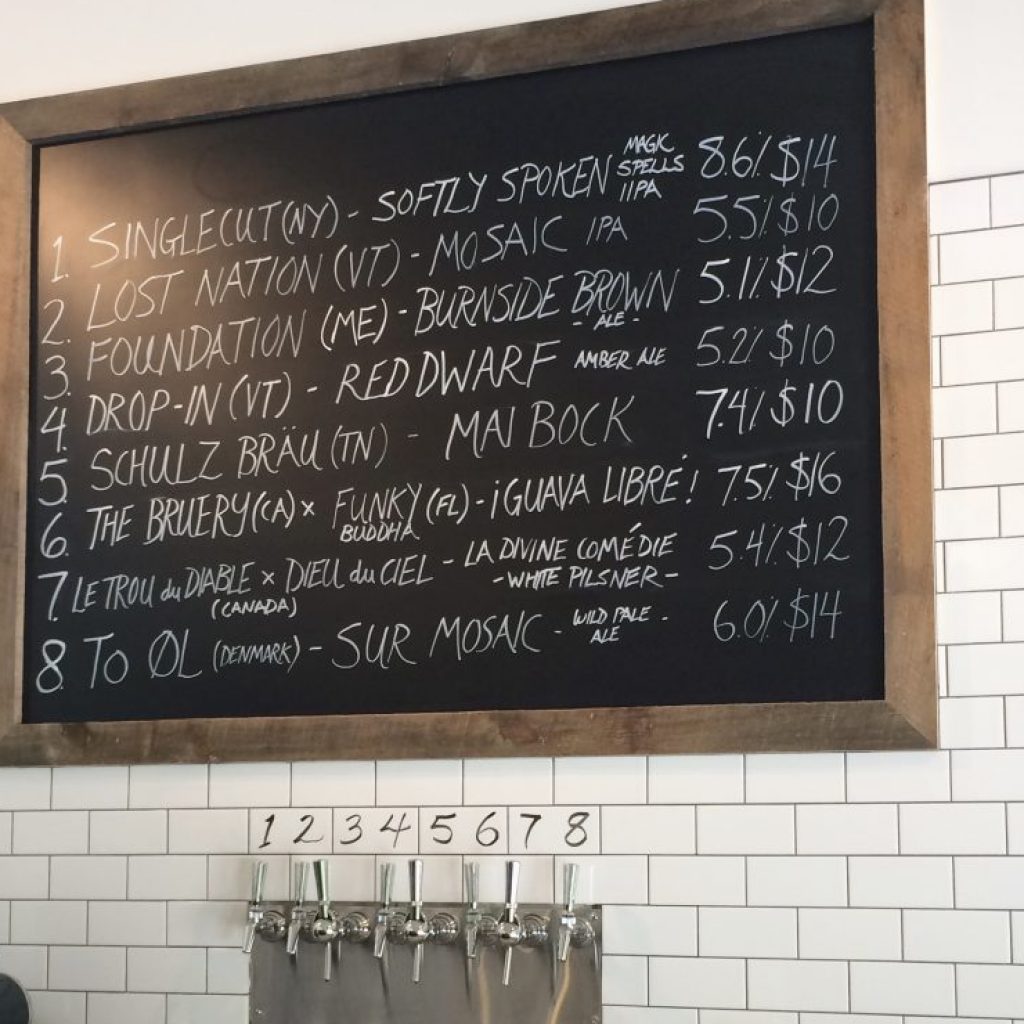 1. SINGLECUT (NY) - SOFTLY SPOKEN MAGIC SPELLS IIPA 8.6% $14
2. LOST NATION (VT) - MOSAIC IPA 5.5% $10
3. FOUNDATION (ME) - BURNSIDE BROWN - ALE - 5.1% $12
4. DROP-IN (VT) - RED DWARF AMBER ALE 5.2% $10
5. SCHULZ BRÄU (TN) - MAI BOCK 7.4% $10
6. THE BRUERY (CA) x FUNKY BUDDHA (FL) - ¡GUAVA LIBRÉ! 7.5% $16
7 LE TROU du DIABLE x DIEU du CIEL (CANADA) - LA DIVINE COMÉDIE - WHITE PILSNER - 5.4% $12
8. TO ØL (DENMARK) - SUR MOSAIC - WILD PALE ALE - 6.0% $14
1 2 3 4 5 6 7 8